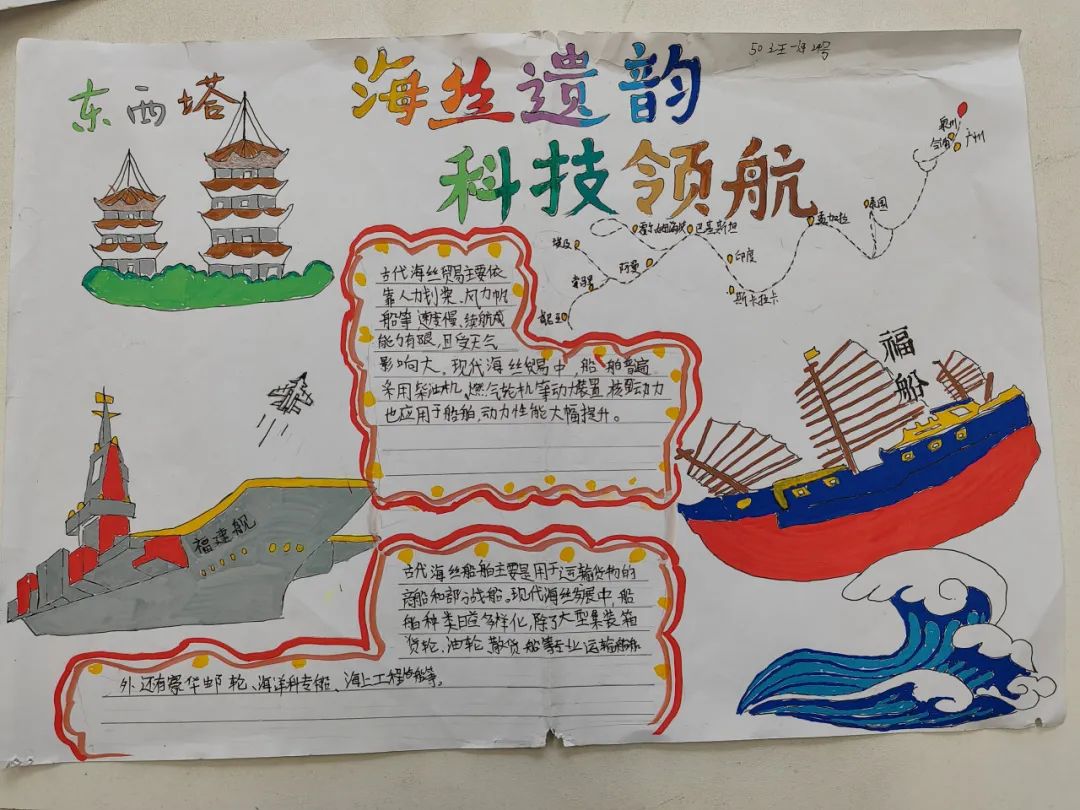 东西塔
海丝遗韵
科技领航
泉州
广州
泰国
孟加拉
巴基斯坦
印度
斯卡拉卡
阿曼
埃及
福船
古代海丝贸易主要依
靠人力划桨、风力帆
船等速度慢、续航
能力有限,且受天气
影响大。现代海丝贸易中,船舶普遍
采用柴油机、燃气轮机等动力装置,核动力
也应用于船舶,动力性能大幅提升。
福建舰
古代海丝船舶主要是用于运输货物的
商船和部分战船。现代海丝发展中,船
舶种类日益多样化,除了大型集装箱
货轮、油轮、散货船等专业运输船
外还有豪华邮轮、海洋科考船、海上工程船等。